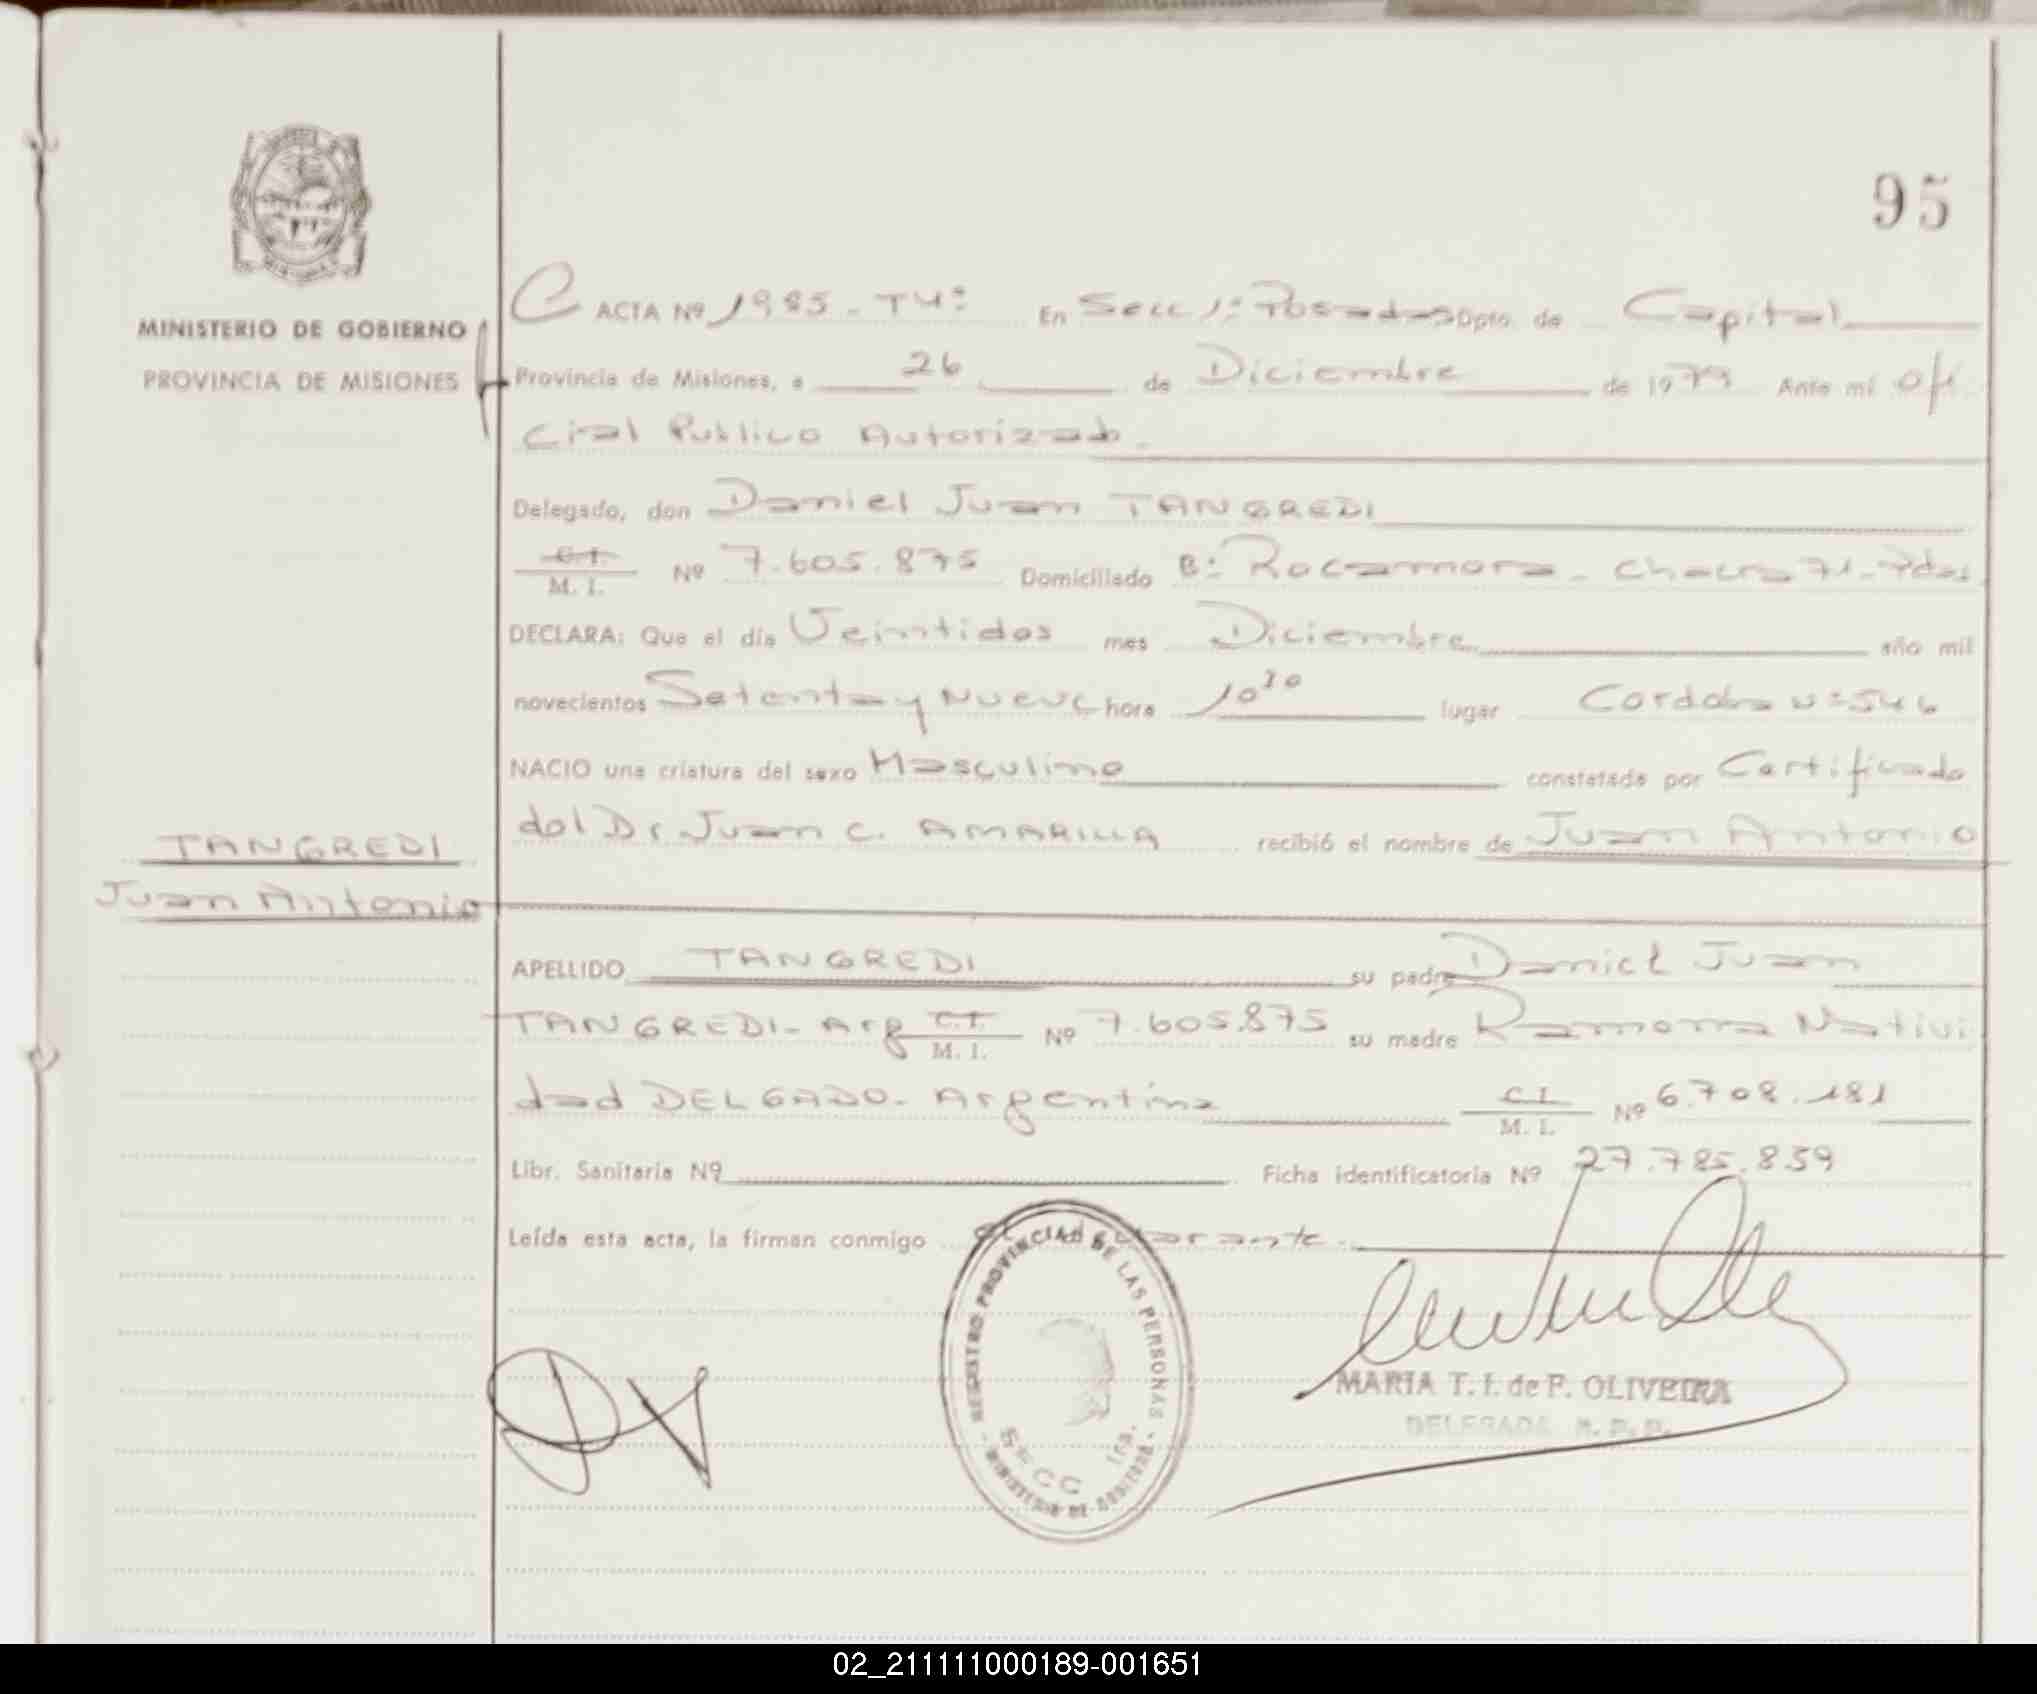 95
MINISTERIO DE GOBIERNO
PROVINCIA DE MISIONES
ACTA Nº 1985 - T4º En Secc 1º Posadas Dpto. de Capital
Provincia de Misiones, a 26 de Diciembre de 1979 Ante mí Ofi
cial Publico Autorizado.
Delegado, don Daniel Juan TANGREDI
C.I. M. I. Nº 7.605.875 Domiciliado Bº Rocamora - Chacra 71 - Pdas
DECLARA: Que el día Veintidos mes Diciembre año mil
novecientos Setenta y Nueve hora 10 30 lugar Cordoba Nº 546
NACIO una criatura del sexo Masculino constatada por Certificado
del Dr. Juan C. AMARILLA recibió el nombre de Juan Antonio
TANGREDI
Juan Antonio
APELLIDO TANGREDI su padre Daniel Juan
TANGREDI - Arg C.I. M. I. Nº 7.605.875 su madre Ramona Nativi
dad DELGADO - Argentina C I M. I. Nº 6.708.181
Libr. Sanitaria Nº Ficha identificatoria Nº 27.785.859
Leída esta acta, la firman conmigo
REGISTRO PROVINCIAL DE LAS PERSONAS
SECC 1ra.
- MINISTERIO DE GOBIERNO -
MARIA T. I. de F. OLIVEIRA
DELEGADA R. P. P.
02_211111000189-001651